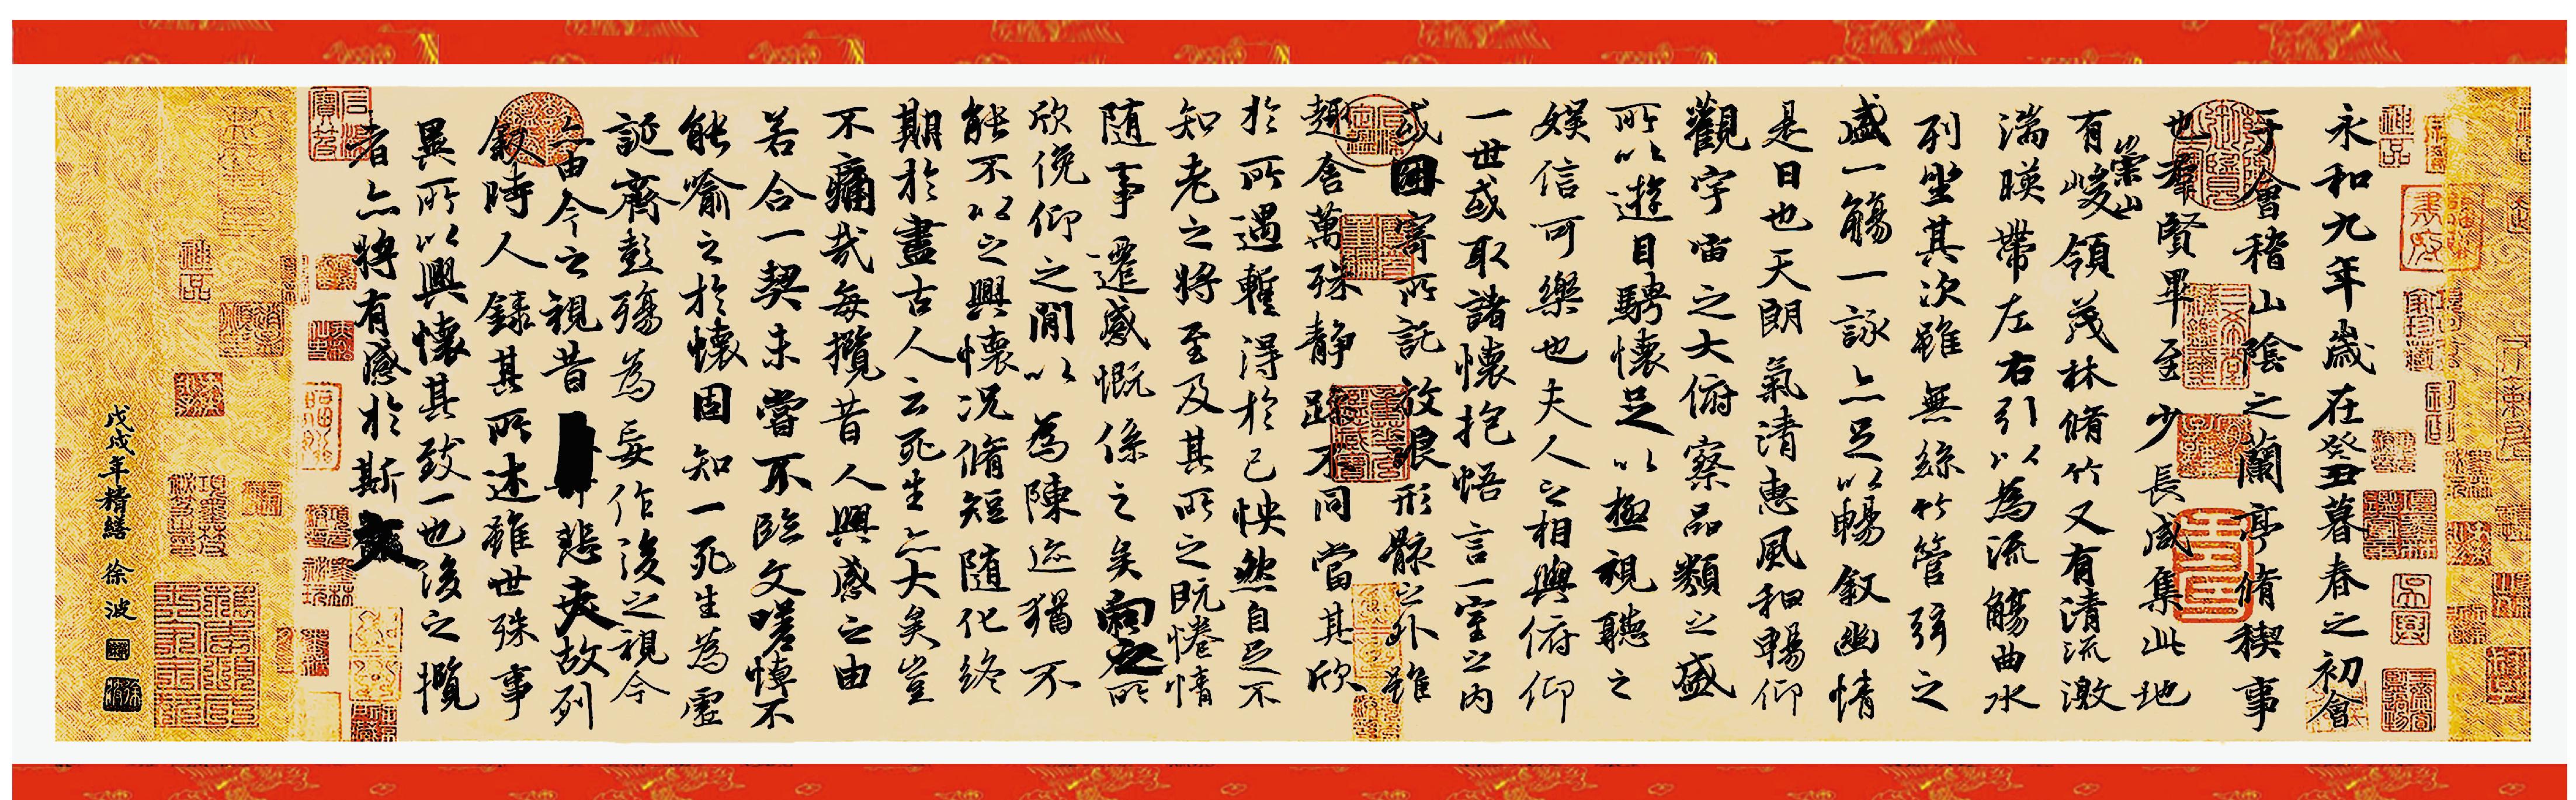 永和九年歲在癸丑暮春之初會
于會稽山陰之蘭亭脩稧事
也群賢畢至少長咸集此地
有崇山峻領茂林脩竹又有清流激
湍暎帶左右引以為流觴曲水
列坐其次雖無絲竹管弦之
盛一觴一詠亦足以暢敘幽情
是日也天朗氣清惠風和暢仰
觀宇宙之大俯察品類之盛
所以遊目騁懷足以極視聽之
娛信可樂也夫人之相與俯仰
一世或取諸懷抱悟言一室之內
或因寄所託放浪形骸之外雖
趣舍萬殊静躁不同當其欣
於所遇暫得於己怏然自足不
知老之將至及其所之既惓情
随事遷感慨係之矣向之所
欣俛仰之閒以為陳迹猶不
能不以之興懷況脩短随化終
期於盡古人云死生亦大矣豈
不痛哉每攬昔人興感之由
若合一契未嘗不臨文嗟悼不
能喻之於懷固知一死生為虛
誕齊彭殤為妄作後之視今
亦由今之視昔悲夫故列
敘時人錄其所述雖世殊事
異所以興懷其致一也後之攬
者亦將有感於斯文
戊戌年精繕 徐波